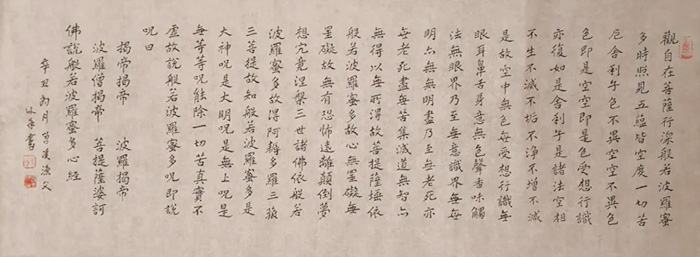 觀自在菩薩行深般若波羅蜜
多時照見五蘊皆空度一切苦
厄舍利子色不異空空不異色
色即是空空即是色受想行識
亦復如是舍利子是諸法空相
不生不滅不垢不淨不增不減
是故空中無色無受想行識無
眼耳鼻舌身意無色聲香味觸
法無眼界乃至無意識界無無
明亦無無明盡乃至無老死亦
無老死盡無苦集滅道無智亦
無得以無所得故菩提薩埵依
般若波羅蜜多故心無罣礙無
罣礙故無有恐怖遠離顛倒夢
想究竟涅槃三世諸佛依般若
波羅蜜多故得阿耨多羅三藐
三菩提故知般若波羅蜜多是
大神咒是大明咒是無上咒是
無等等咒能除一切苦真實不
虛故說般若波羅蜜多咒即說
咒曰
揭帝揭帝 波羅揭帝
波羅僧揭帝 菩提薩婆訶
佛說般若波羅蜜多心經
辛丑
書